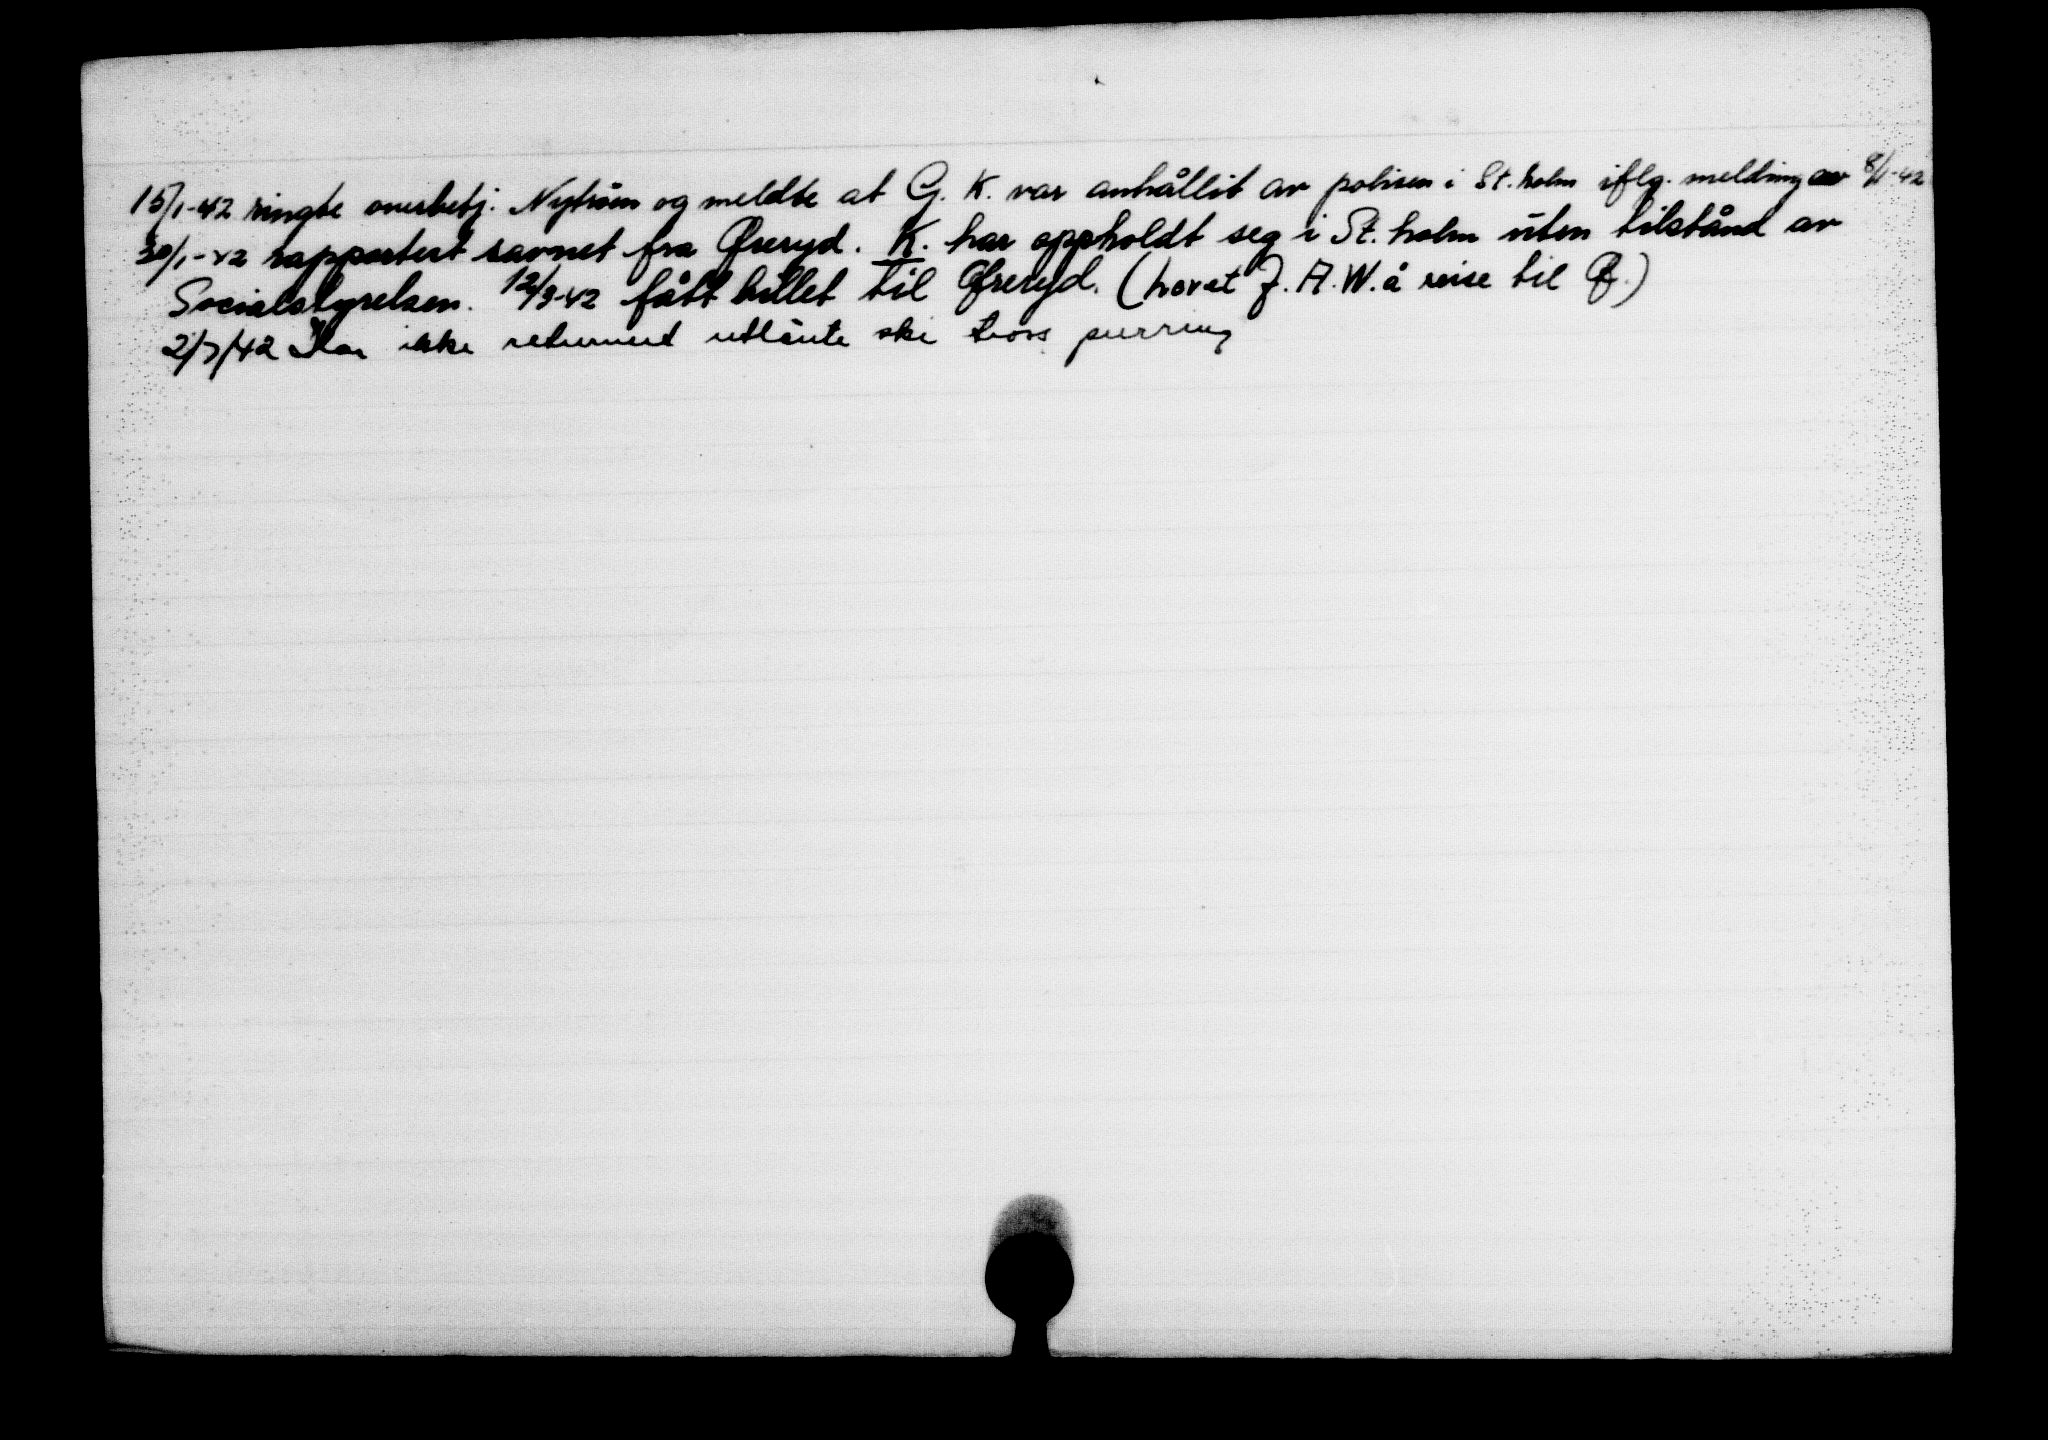 15/1-42 ringte overbetj. Nytrøm og meldte at G. K. var anhållit av polisen i St. holm iflg. melding av 8/1-42
30/1-42 rapportert savnet fra Øreryd. K. har oppholdt seg i St. holm uten tilstånd av
Socialstyrelsen. 12/3-42 fått billet til Øreryd. (lovet J. A. W. å reise til Ø.)
2/7/42 Har ikke returnert utlånte ski tross purring